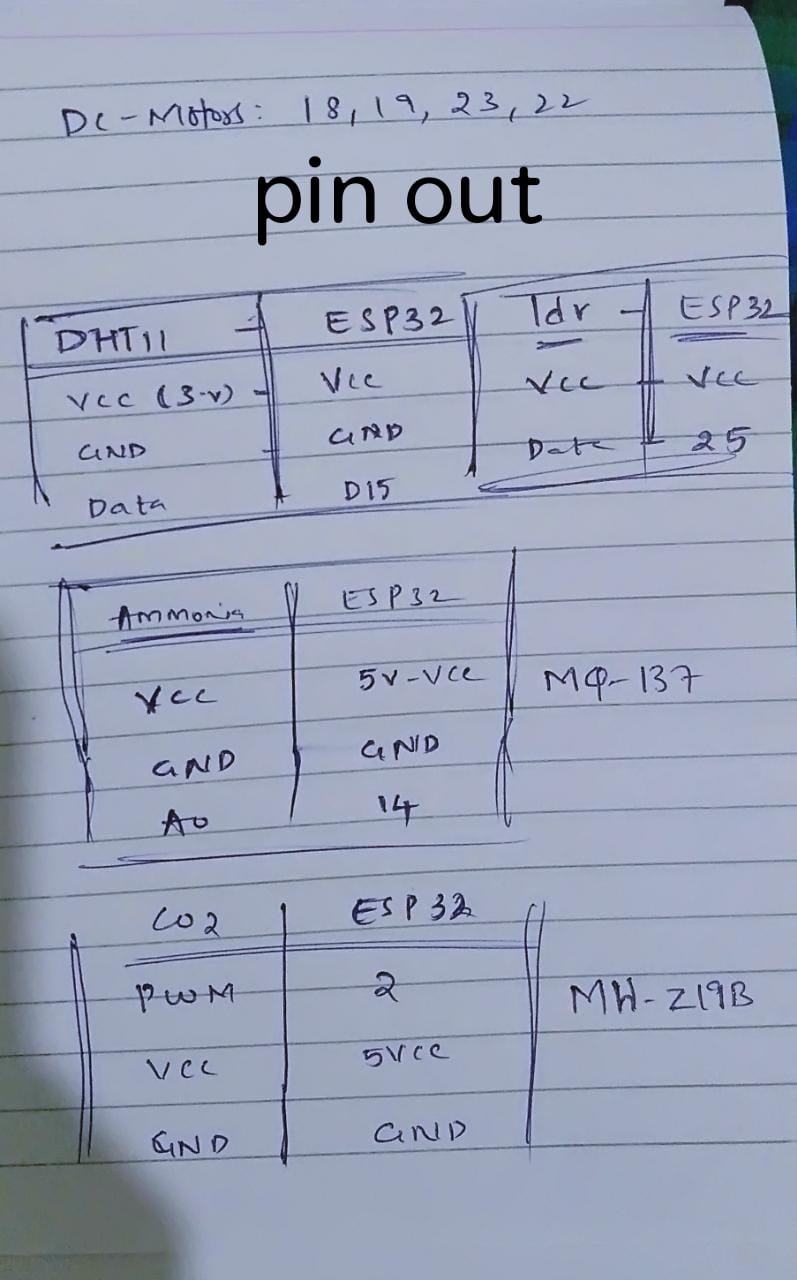 DC-Motors: 18, 19, 23, 22
pin out
DHT11 - ESP32
VCC (3-v) - VCC
GND - GND
Data - D15
Ldr - ESP32
VCC - VCC
Data - 25
Ammonia ESP32
VCC 5V-VCC
GND GND
A0 14
MQ-137
CO2 ESP32
PWM 2
VCC 5VCC
GND GND
MH-Z19B